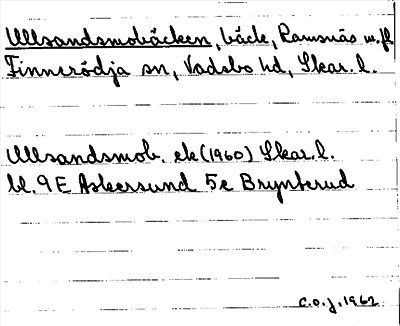 Ullsandsmobäcken, bäck, Ramsnäs m.fl
Finnerödja sn, Vadsbo hd, Skar. l.
Ullsandsmob. ek (1960) Skar. l.
bl. 9 E Askersund 5e Brynterud
C.O.J. 1962